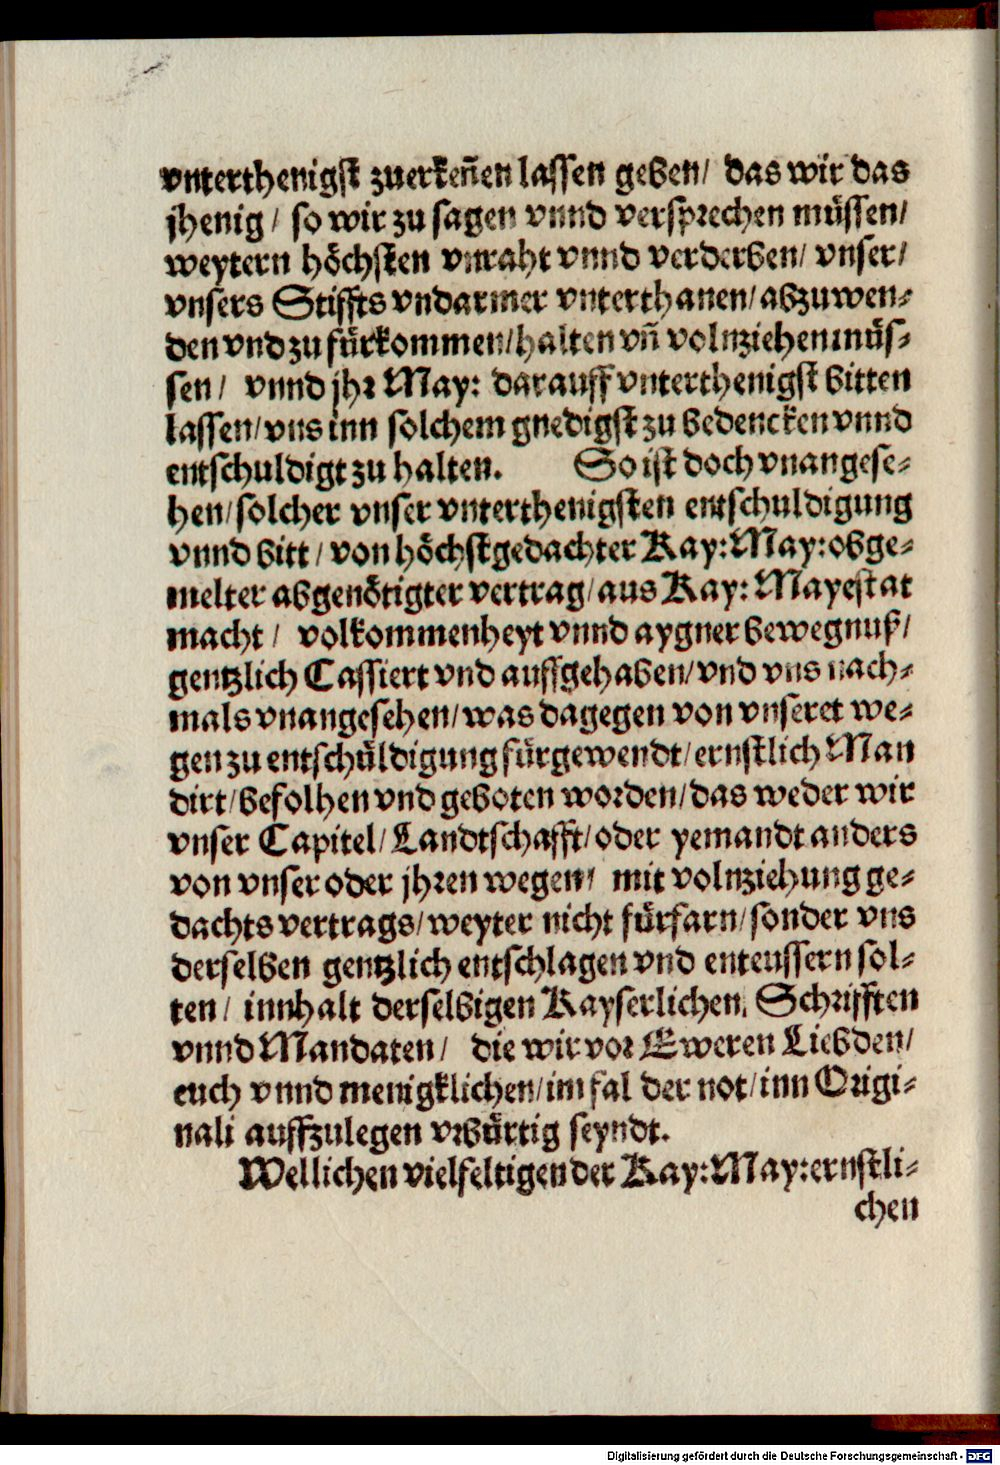 vnterthenigst zuerkeñen lassen geben/ das wir das
jhenig/ so wir zu sagen vnnd versprechen müssen/
weytern höchsten vnraht vnnd verderben/ vnser/
vnsers Stiffts vnd armer vnterthanen/ abzuwen-
den vnd zu fürkommen/ halten vñ volnziehen müs-
sen/ vnnd jhr May: darauff vnterthenigst bitten
lassen/ vns inn solchem gnedigst zu bedencken vnnd
entschuldigt zu halten. So ist doch vnangese-
hen/ solcher vnser vnterthenigsten entschuldigung
vnnd bitt/ von höchstgedachter Kay: May: obge-
melter abgenötigter vertrag/ aus Kay: Mayestat
macht/ volkommenheyt vnnd aygner bewegnuß/
gentzlich Cassiert vnd auffgehaben/ vnd vns nach-
mals vnangesehen/ was dagegen von vnseret we-
gen zu entschüldigung fürgewendt/ ernstlich Man
dirt/ befolhen vnd geboten worden/ das weder wir
vnser Capitel/ Landtschafft/ oder yemandt anders
von vnser oder jhren wegen/ mit volnziehung ge-
dachts vertrags/ weyter nicht fürfarn/ sonder vns
derselben gentzlich entschlagen vnd enteussern sol-
ten/ innhalt derselbigen Kayserlichen. Schrifften
vnnd Mandaten/ die wir vor Eweren Liebden/
euch vnnd menigklichen/ im fal der not/ inn Origi-
nali auffzulegen vrbürtig seyndt.
Wellichen vielfeltigen der Kay: May: ernstli-
chen
Digitalisierung gefördert durch die Deutsche Forschungsgemeinschaft - DFG